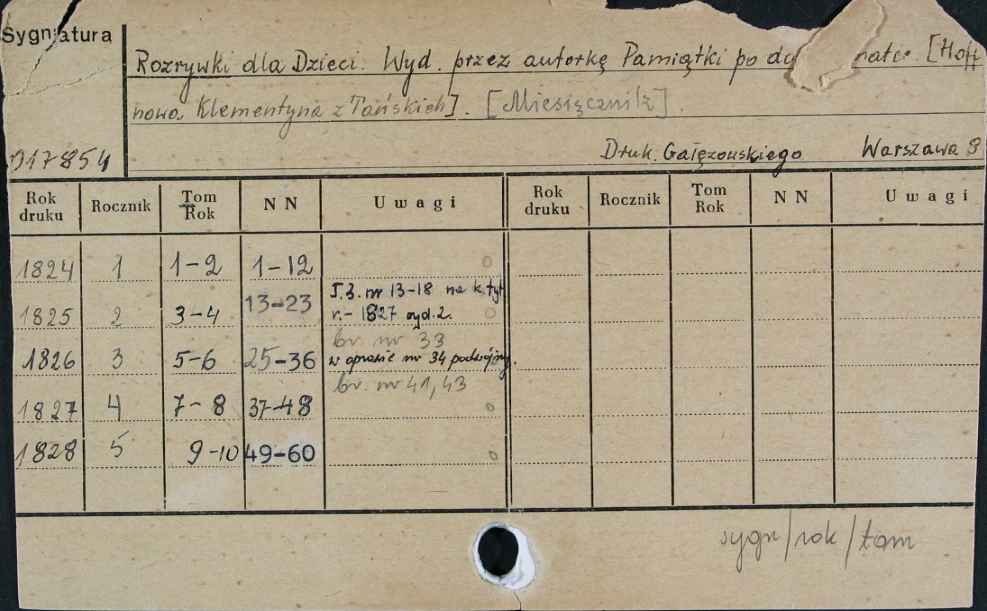 Sygnatura
Rozrywki dla Dzieci. Wyd. przez autorkę Pamiątki po [Hoff
nowa Klementyna z Tańskich]. [Miesięcznik].
017854 Druk. Gałęzowskiego Warszawa 8
Rok druku Rocznik Tom Rok N N Uwagi Rok druku Rocznik Tom Rok N N Uwagi
1824 1 1-2 1-12
T.3. nr 13-18 na k. tyt
1825 2 3-4 13-23 r.- 1827 wyd. 2.
br. nr 33
1826 3 5-6 25-36 w oprawie nr 34 podwójny.
br. nr 41, 43
1827 4 7-8 37-48
1828 5 9-10 49-60
sygn/rok/tom